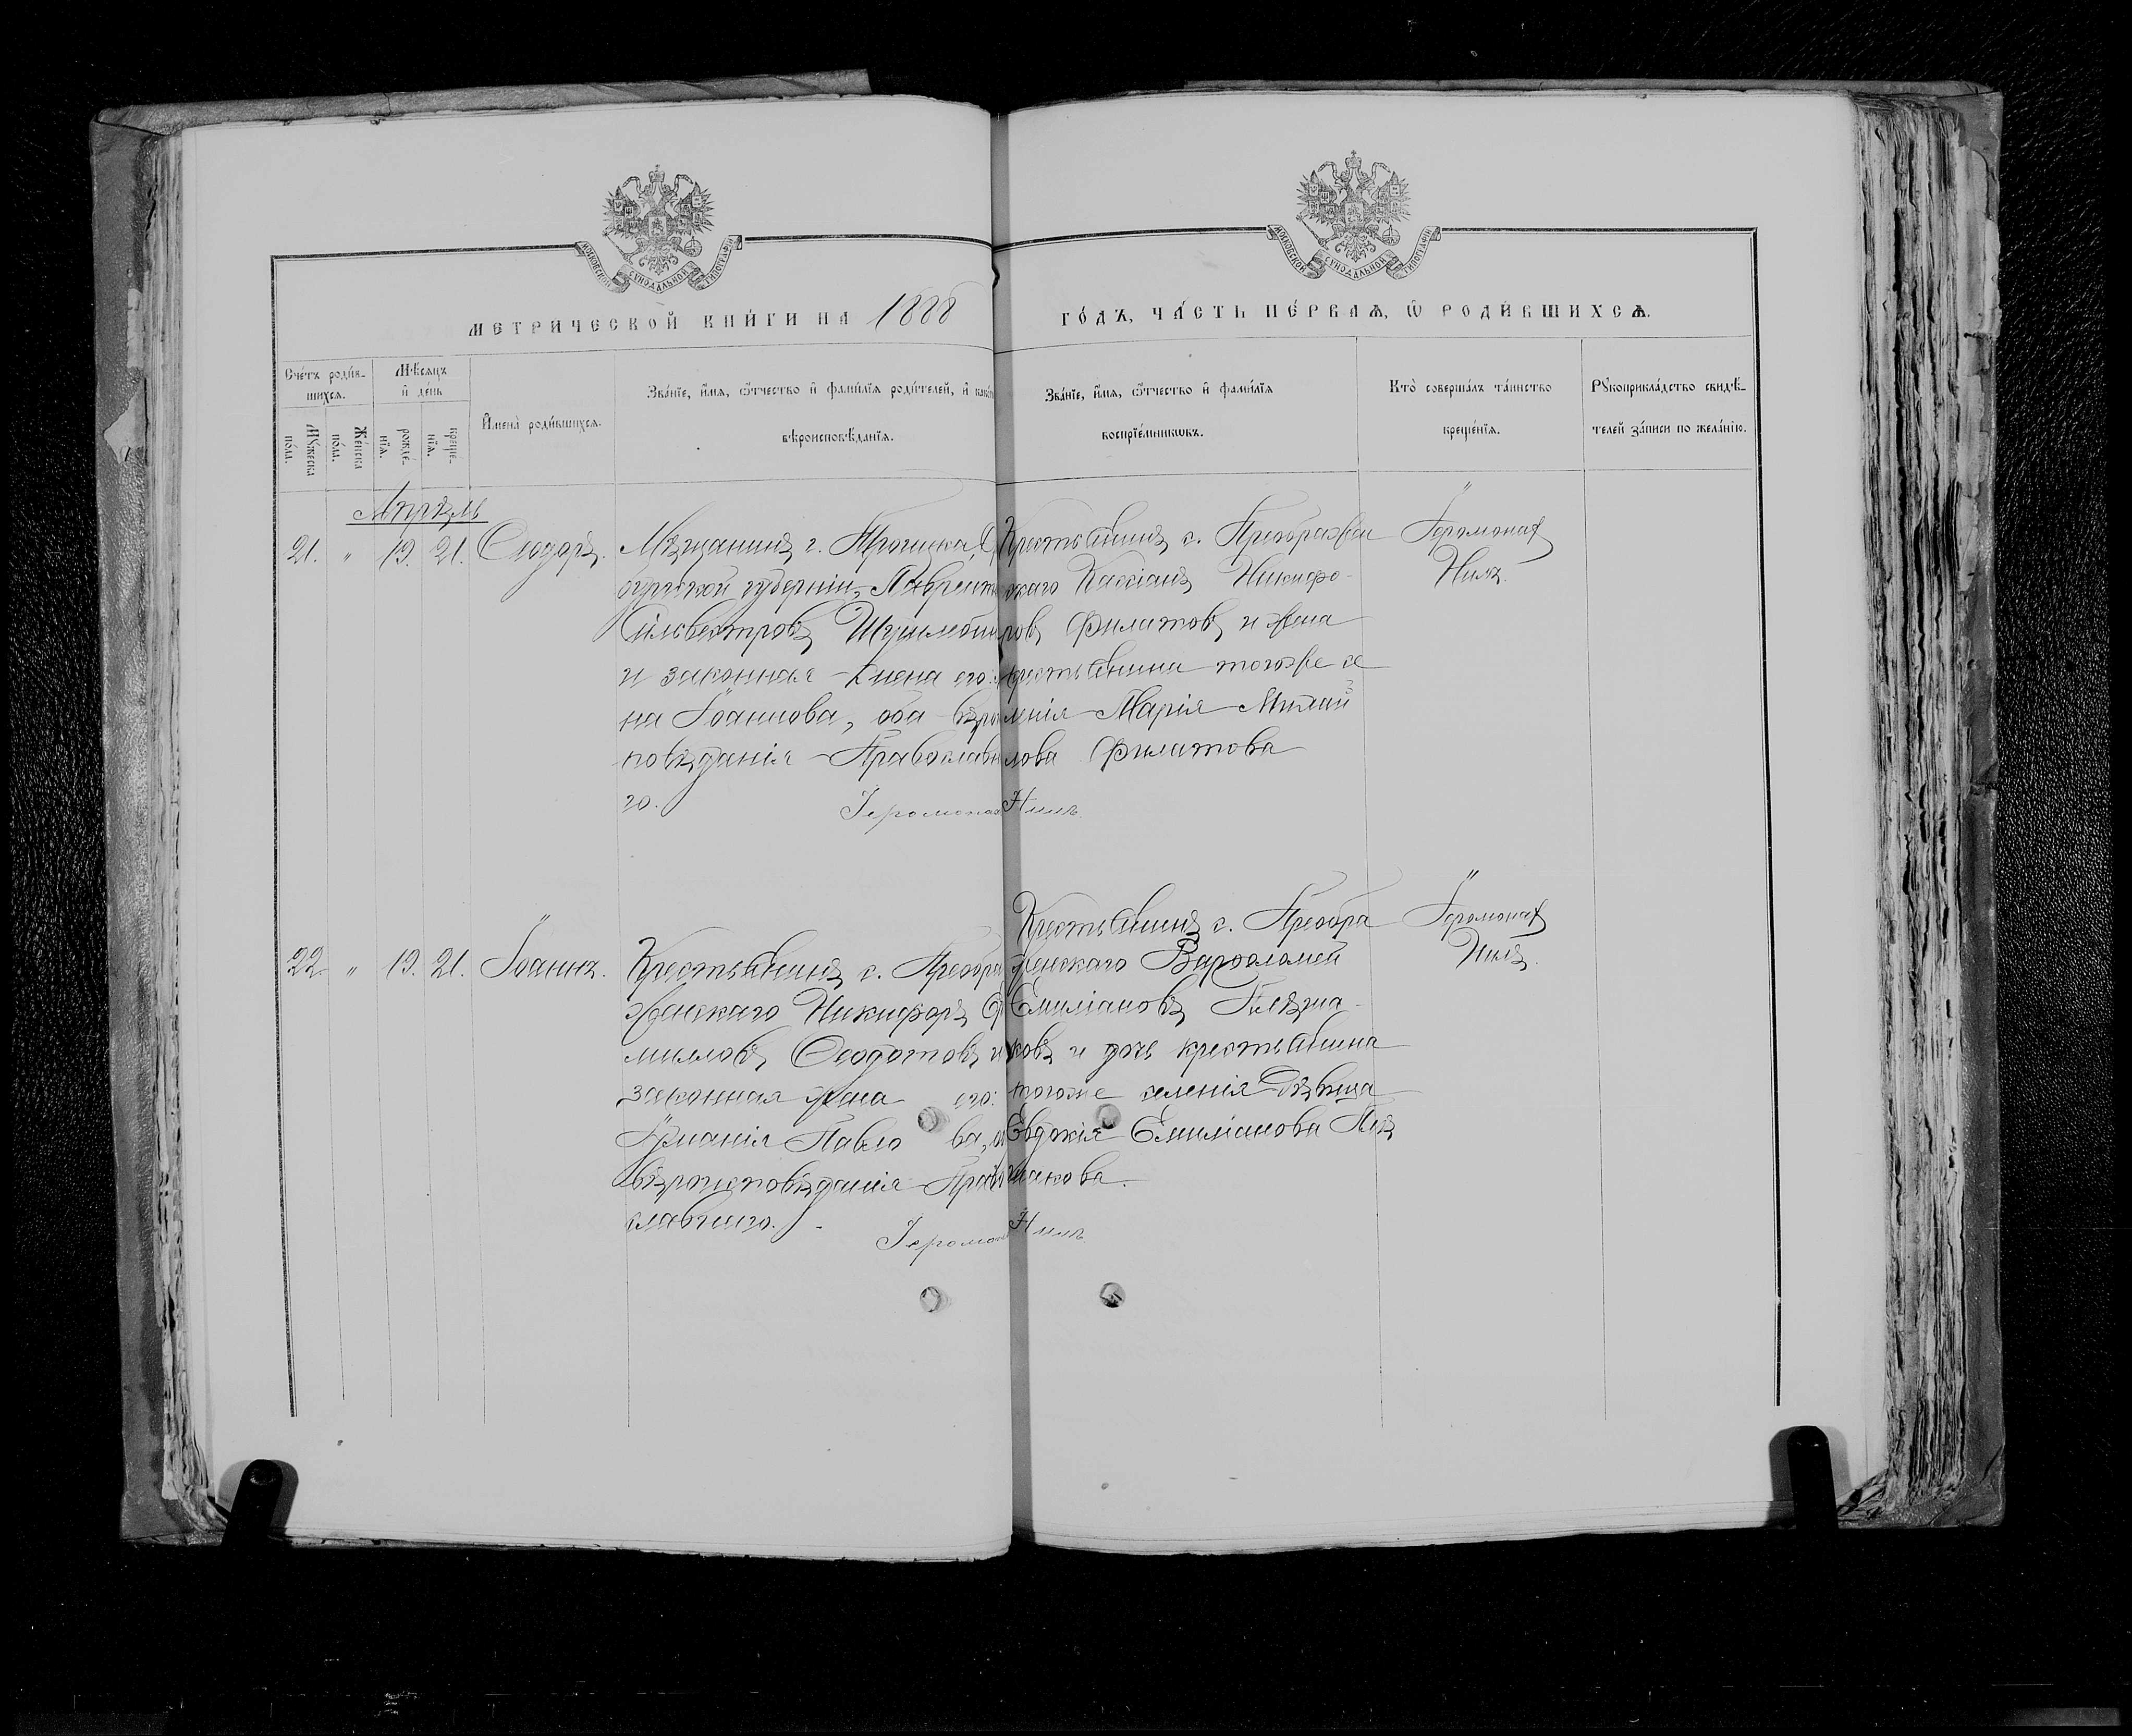 МОСКОВСКОЙ СѴНОДАЛЬНОЙ ТИПОГРАФІИ
МОСКОВСКОЙ СѴНОДАЛЬНОЙ ТИПОГРАФІИ
МЕТРИ́ЧЕСКОЙ КНИ́ГИ НА 1888
ГО́ДЪ, ЧА́СТЬ ПЕ́РВАѦ, Ѽ РОДИ́ВШИХСѦ.
Сче́тъ роди́в-
шихсѧ.
Мꙋ́жеска
по́ла.
Же́нска
по́ла.
Мѣ́сѧцъ
и҆ де́нь
рожде́-
нїѧ.
креще́-
нїѧ.
И҆мена̀ роди́вшихсѧ.
Зва́нїе, и҆́мѧ, ѻ҆́тчество и҆ фами́лїѧ роди́телей, и҆
вѣроисповѣ́данїѧ.
Зва́нїе, и҆́мѧ, ѻ҆́тчество и҆ фами́лїѧ
воспрїе́мникѡвъ.
Кто̀ соверша́лъ та́инство
креще́нїѧ.
Рꙋкоприкла́дство свидѣ́-
телей за́писи по жела́нїю.
Апрѣль
21. " 19. 21. Ѳеодоръ.
Мѣщанинъ г. Троицка,
бургской губерніи,
Сильвестровъ
и законная жена его:
на Іоаннова, оба вѣрои
повѣданія Православна
го. Іеромонах
Крестьянинъ с. Преображен
скаго Кассіанъ Никифо-
ровъ Филатовъ и жена
крестьянина тогоже се
ленія Марія Михаи
лова Филатова
Нилъ
Іеромонах
Нилъ.
22. " 19. 21. Іоаннъ.
Крестьянинъ с. Преобра
женскаго Никифоръ
Ѳеодотовъ и
законная жена его:
Павло ва,
вѣроисповѣданія Право
славнаго.
Іеромо
Крестьянинъ с. Преобра
женскаго Варѳоломей
Емиліановъ
ковъ и дочь крестьянина
тогоже селенія Дѣвица
Евдокія Емиліанова
Нилъ
Іеромонах
Нилъ.